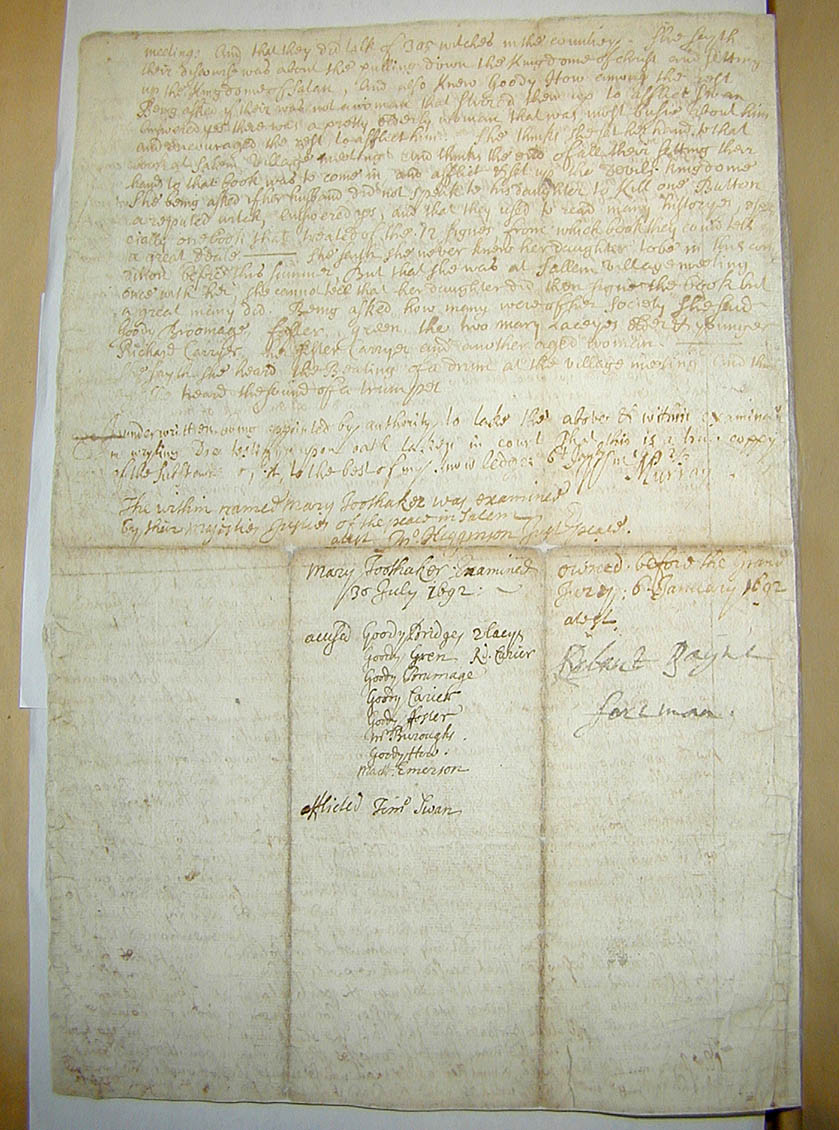 meeting: And that they did talk of 305 witches in the country. She sayth
their discourse was about the pulling down the Kingdome of Christ and setting
up the Kingdome of Satan, And also knew Goody How among the rest
Being asked if their was not a woman that stirred them up to afflict Swan
Answered yes there was a pretty Elderly woman that was most busie about him
and encouraged the rest to afflict him. She thinks she set her hand to that
book at Salem Village meeting and thinks the end of all their setting their
hand to that book was to come in and afflict & set up the Devils Kingdome
She being asked if her husband did not speak to his daughter to Kill one Button
a reputed witch, answered yes, and that they used to read many historyes, espe
cially one book that treated of the 12 signes from which book they could tell
a great deale. She sayth she never knew her daughter to be in this con
dition before this summer, But that she was at Sallem Village meeting
once with her, she cannot tell that her daughter did then signe the book but
a great many did. Being asked how many were of her Society she said
Goody Broomage, Foster, Green, the two mary Laceyes elder & younger
Richard Carryer, Carryer and another aged woman.
sayth she heard the Beating of a drum at the village meeting And think
heard the sound of a trumpet
I underwritten being appointed by authority to take the above & within examina
in wryting Doe testify upon oath taken in court That this is a true coppy
of the substance of it, to the best of my knowledge 6th
Murray
The within named Mary Toothaker was examined
by their majesties Justices of the peace in Salem
atest Higginson Just peace.
Mary Toothaker Examined
30 July 1692:
acused Goody Bridges 2 laceys
Goody Gren Ri. Carier
Goody Brumage
Goody Carier
Goody foster
Mr Buroughs.
Goody How.
Emerson
afflicted Timo Swan
owned before the Grand
Jurey: 6 January 1692
atest.
Robart Payne
foreman.